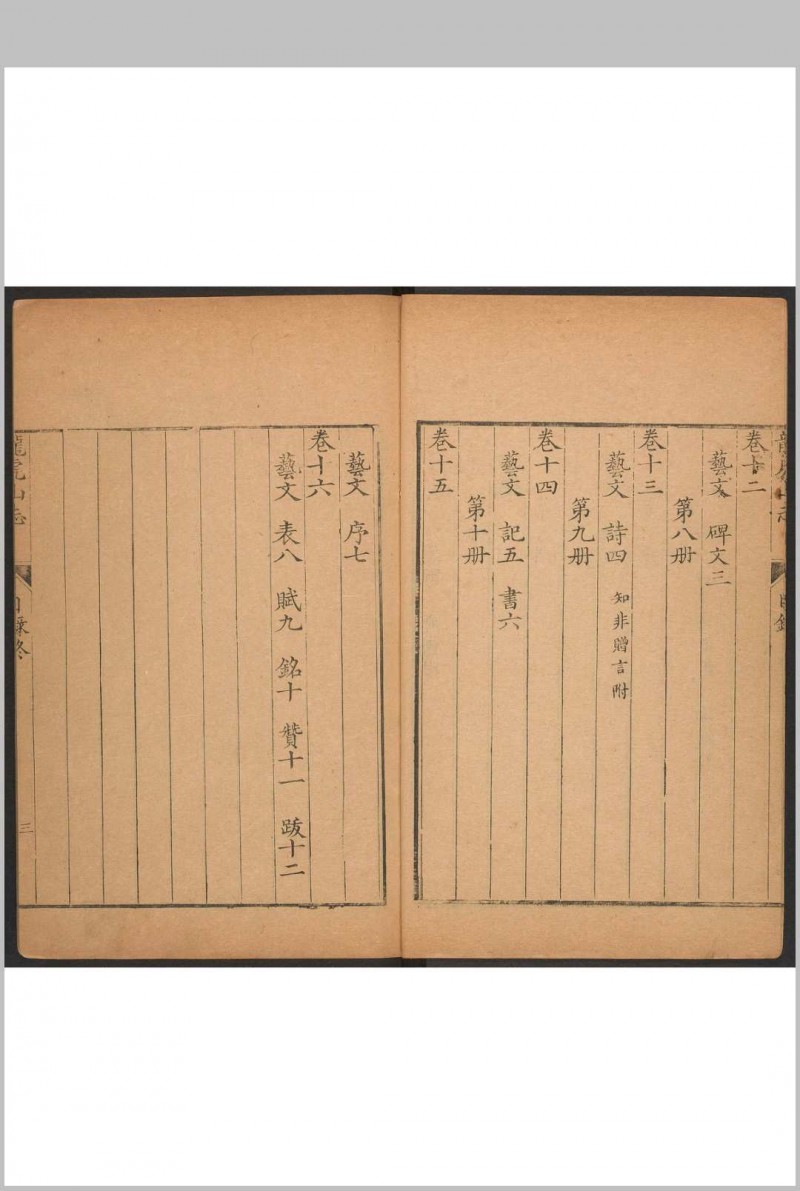 龍虎山志 目錄
卷十二
藝文 碑文三
第八册
卷十三
藝文 詩四 知非贈言附
第九册
卷十四
藝文 記五 書六
第十册
卷十五
藝文 序七
卷十六
藝文 表八 賦九 銘十 贊十一 跋十二
龍虎山志 目錄終 三